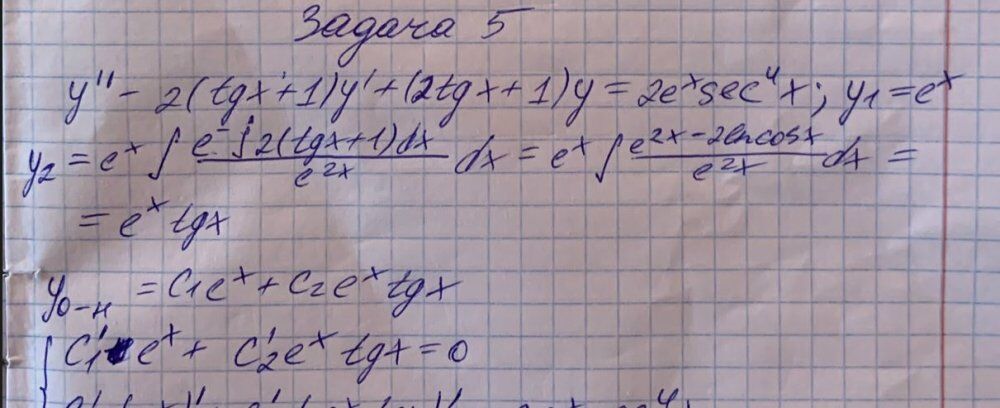 Задача 5
y'' - 2(tgx+1)y' + (2tgx+1)y = 2eˣsec⁴x; y₁ = eˣ
y₂ = eˣ ∫ e^(-∫2(tgx+1)dx) / e²ˣ dx = eˣ ∫ e^(2x-2lncosx) / e²ˣ dx =
= eˣ tgx
y₀₋ₙ = C₁eˣ + C₂eˣtgx
C₁'eˣ + C₂'eˣ tgx = 0